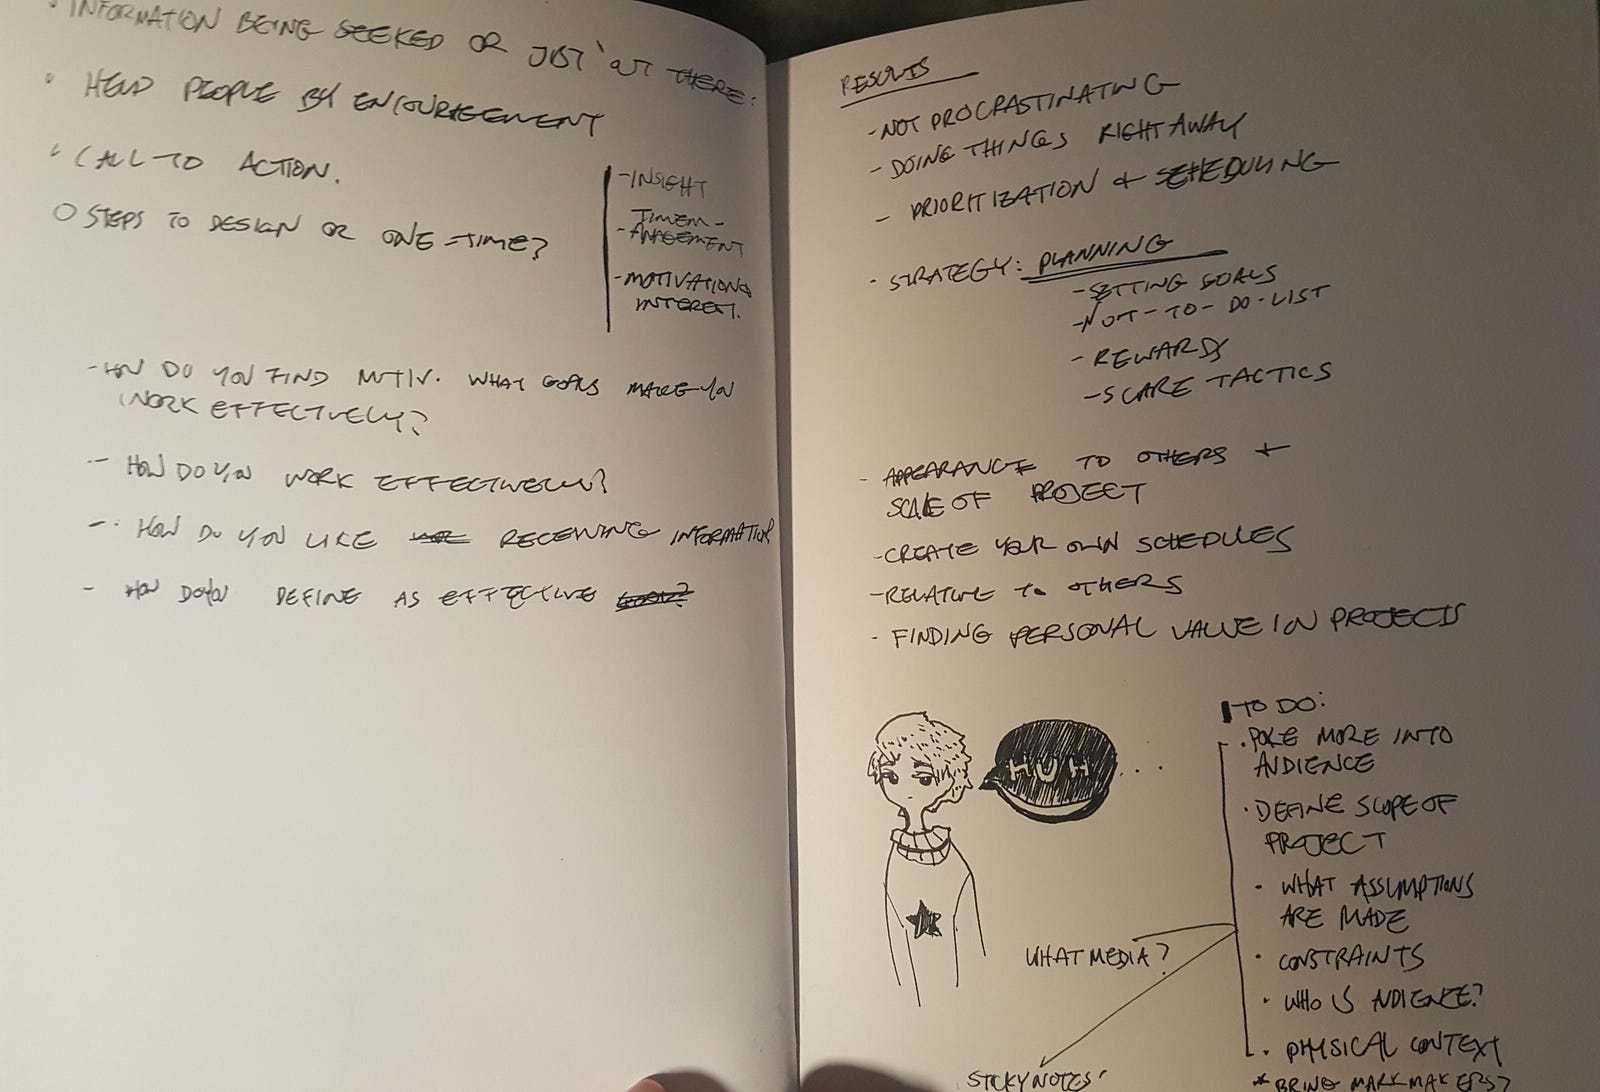 • INFORMATION BEING SEEKED OR JUST 'OUT THERE:
• HELP PEOPLE BY ENCOURAGEMENT
• CALL TO ACTION.
O STEPS TO DESIGN OR ONE-TIME?
- INSIGHT
- TIMEM-
ANAGEMENT
- MOTIVATION &
INTEREST.
- HOW DO YOU FIND MOTIV. WHAT GOALS MAKE YOU
WORK EFFECTIVELY?
- HOW DO YOU WORK EFFECTIVELY?
- HOW DO YOU LIKE RECEIVING INFORMATION
- HOW DO YOU DEFINE AS EFFECTIVE
RESULTS
- NOT PROCRASTINATING
- DOING THINGS RIGHT AWAY
- PRIORITIZATION & SCHEDULING
- STRATEGY: PLANNING
- SETTING GOALS
- NOT-TO-DO-LIST
- REWARDS
- SCARE TACTICS
- APPEARANCE TO OTHERS +
SCALE OF PROJECT
- CREATE YOUR OWN SCHEDULES
- RELATIVE TO OTHERS
- FINDING PERSONAL VALUE IN PROJECTS
HUH...
TO DO:
• POKE MORE INTO
AUDIENCE
• DEFINE SCOPE OF
PROJECT
• WHAT ASSUMPTIONS
ARE MADE
• CONSTRAINTS
• WHO IS AUDIENCE?
• PHYSICAL CONTEXT
* BRING MARKMAKERS?
WHAT MEDIA?
STICKYNOTES